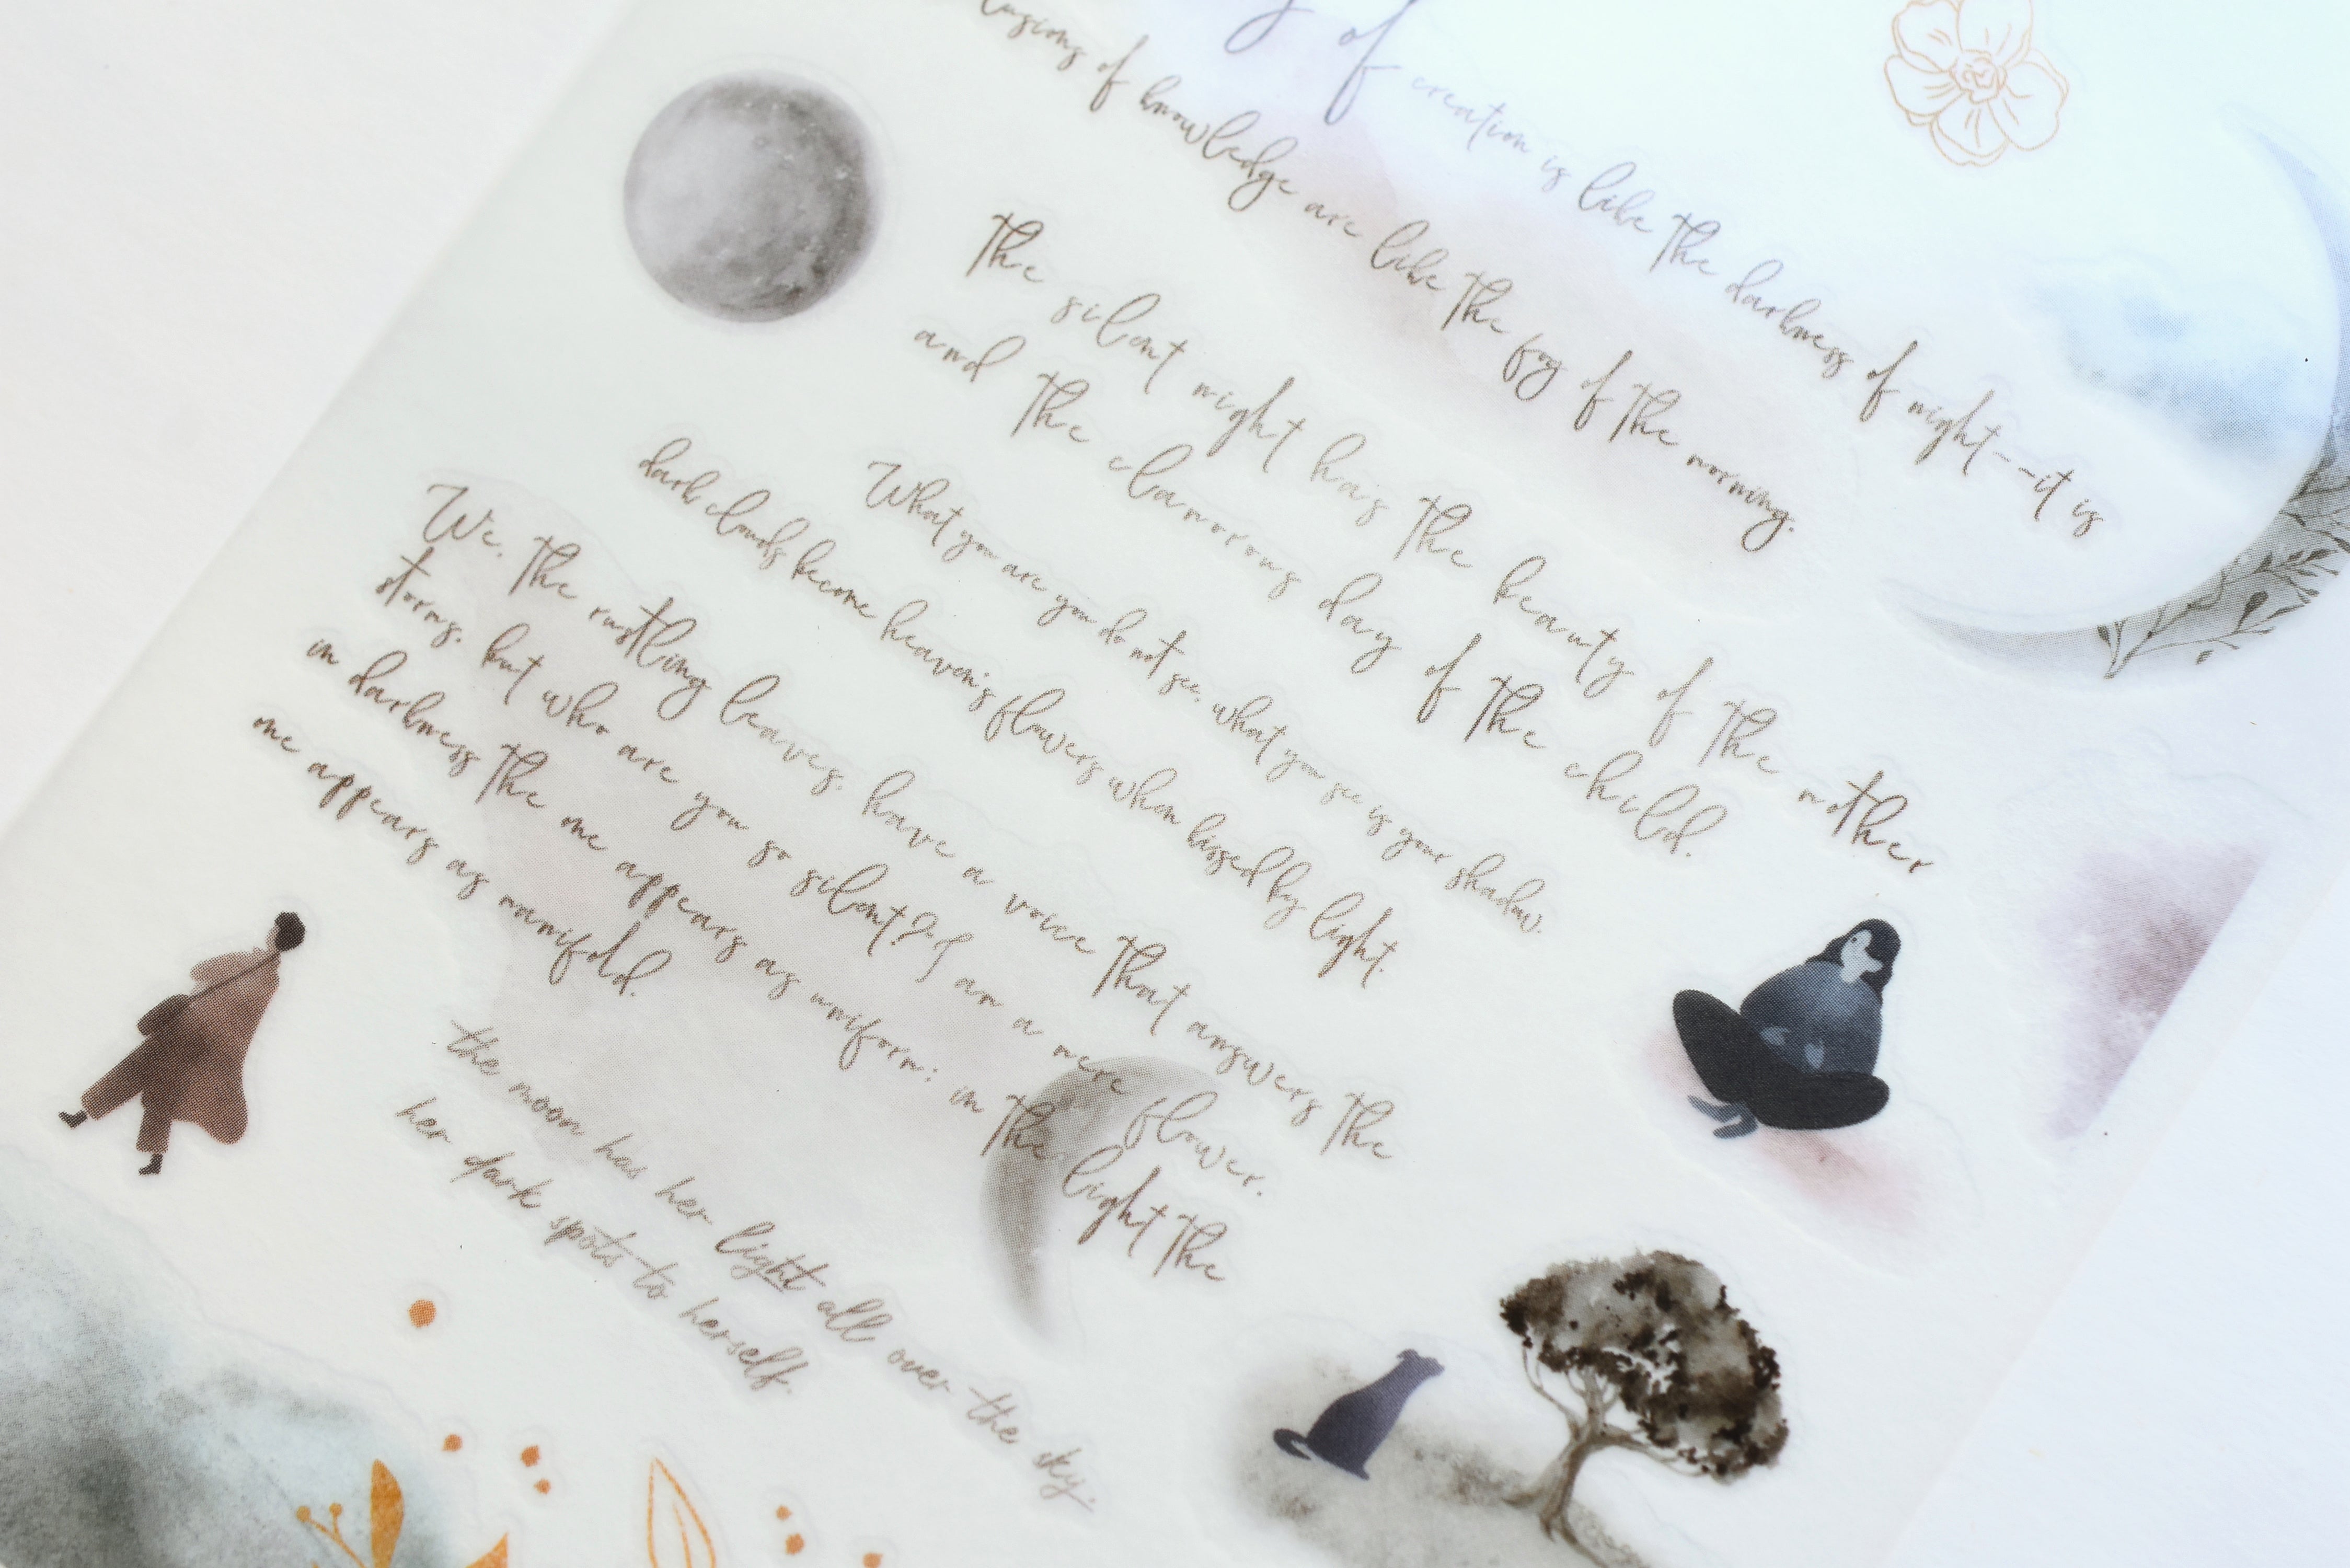 of creation is like the darkness of night--it is
of knowledge are like the fog of the morning.
The silent night has the beauty of the mother
and the clamorous day of the child.
What you are you do not see, what you see is your shadow.
dark clouds become heaven's flowers when kissed by light.
We, the rustling leaves, have a voice that answers the
storms, but who are you so silent? I am a mere flower.
in darkness the one appears as uniform; in the light the
one appears as manifold.
the moon has her light all over the sky,
her dark spots to herself.